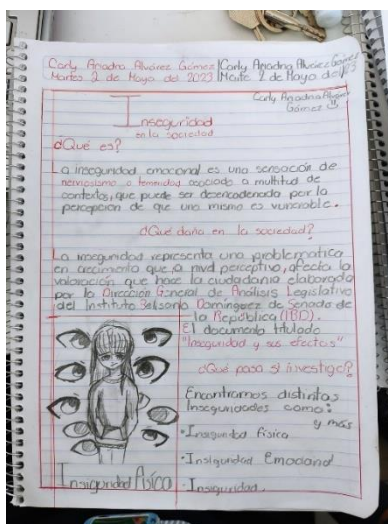 Carly Ariadna Alvarez Gómez
Martes 2 de Mayo del 2023
Carly Ariadna Alvarez Gómez
Martes 2 de Mayo del 2023
Carly Ariadna Alvarez
Gómez
Inseguridad
en la sociedad
¿Qué es?
La inseguridad emocional es una sensación de
nerviosismo o temmidad asociado a multitud de
contextos, que puede ser desencadenada por la
percepcion de que uno mismo es vunerable.
¿Qué daña en la sociedad?
La inseguridad representa una problematica
en crecimiento que, a nivel perceptivo, afecta la
valoración que hace la ciudadania elaborado
por la Dirección General de Análisis Legislativo
del Instituto Belisario Domínguez de Senado de
la República (IBD).
El documento titulado
"Inseguridad y sus efectos"
¿Qué pasa si investigo?
Encontramos distintas
Inseguridades como:
y más
• Inseguridad Física
• Inseguridad Emocional
• Inseguridad.
Inseguridad Física